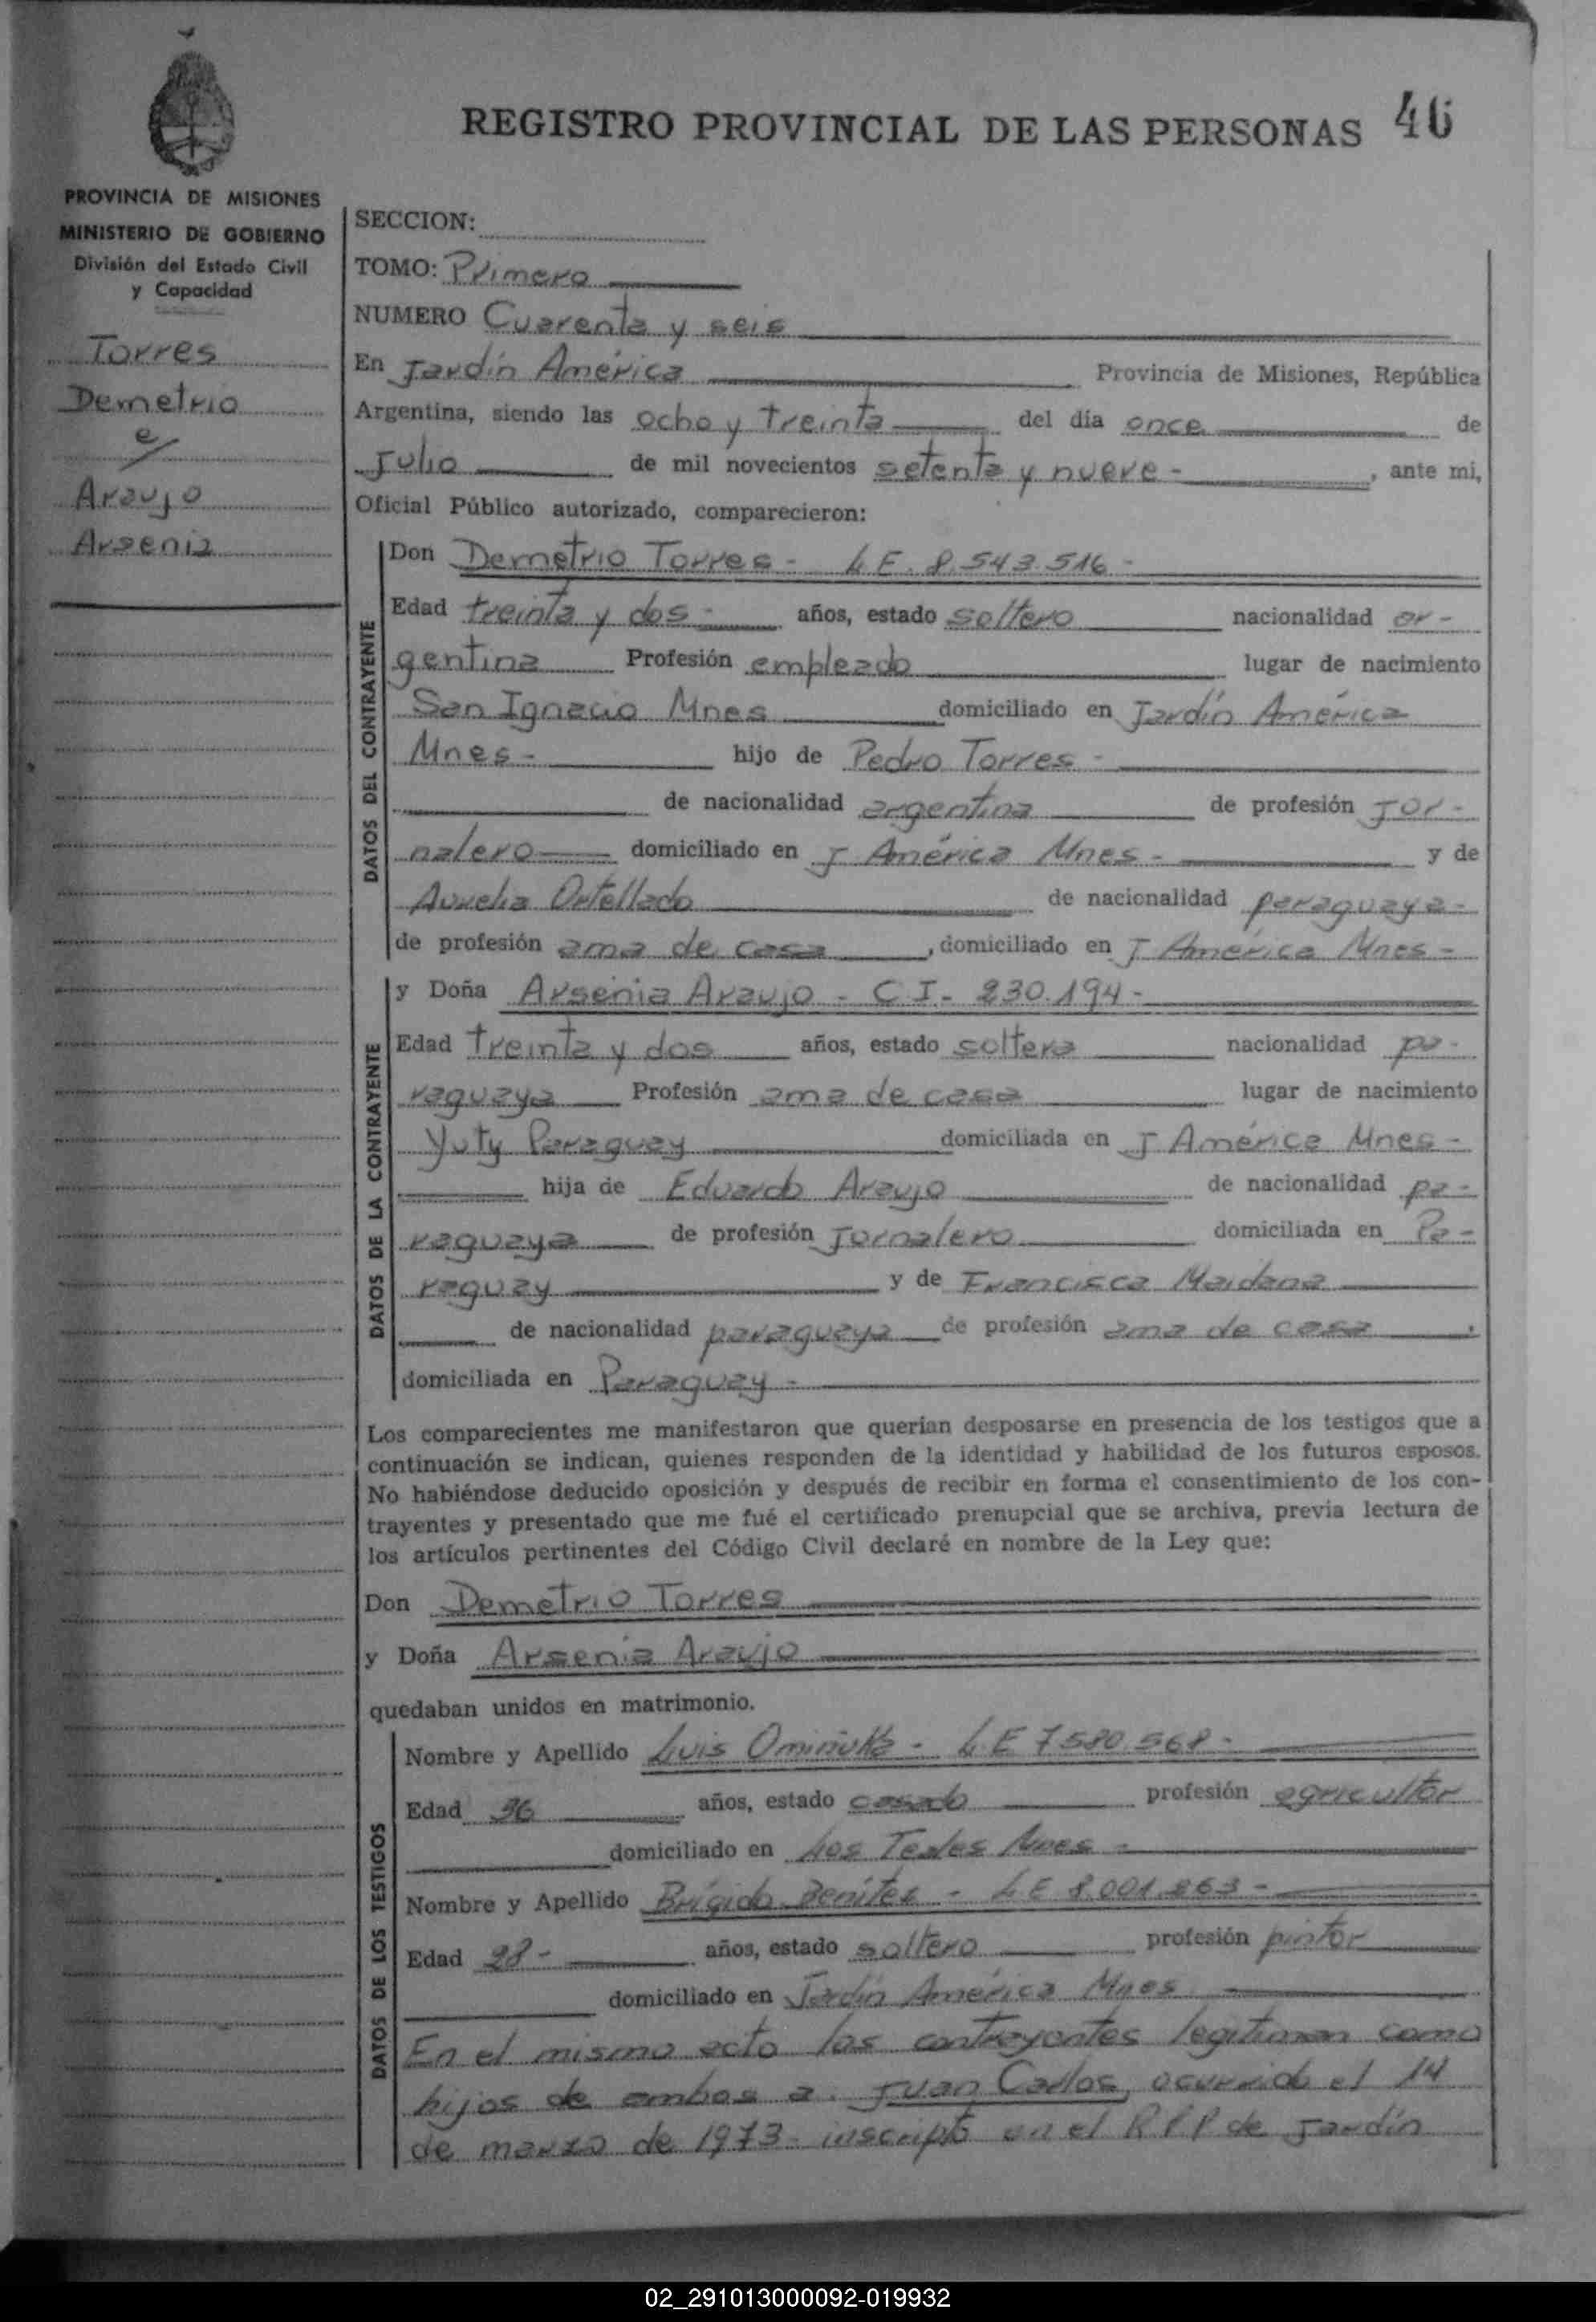 REGISTRO PROVINCIAL DE LAS PERSONAS 46
PROVINCIA DE MISIONES
MINISTERIO DE GOBIERNO
División del Estado Civil
y Capacidad
Torres
Demetrio
e/
Araujo
Arsenia
SECCION:
TOMO: Primero
NUMERO Cuarenta y seis
En Jardín América Provincia de Misiones, República
Argentina, siendo las ocho y treinta del día once de
Julio de mil novecientos setenta y nueve -, ante mi,
Oficial Público autorizado, comparecieron:
DATOS DEL CONTRAYENTE
Don Demetrio Torres - L E. 8.543.516 -
Edad treinta y dos - años, estado soltero nacionalidad ar-
gentina Profesión empleado lugar de nacimiento
San Ignacio Mnes domiciliado en Jardín América
Mnes - hijo de Pedro Torres -
de nacionalidad argentina de profesión Jor-
nalero domiciliado en J América Mnes - y de
Aurelia Ortellado de nacionalidad paraguaya -
de profesión ama de casa, domiciliado en J América Mnes -
DATOS DE LA CONTRAYENTE
y Doña Arsenia Araujo - C I - 230.194 -
Edad treinta y dos años, estado soltera nacionalidad pa-
raguaya Profesión ama de casa lugar de nacimiento
Yuty Paraguay domiciliada en J América Mnes -
hija de Eduardo Araujo de nacionalidad pa-
raguaya de profesión Jornalero domiciliada en Pa-
raguay y de Francisca Maidana
de nacionalidad paraguaya de profesión ama de casa,
domiciliada en Paraguay -
Los comparecientes me manifestaron que querían desposarse en presencia de los testigos que a
continuación se indican, quienes responden de la identidad y habilidad de los futuros esposos.
No habiéndose deducido oposición y después de recibir en forma el consentimiento de los con-
trayentes y presentado que me fué el certificado prenupcial que se archiva, previa lectura de
los artículos pertinentes del Código Civil declaré en nombre de la Ley que:
Don Demetrio Torres
y Doña Arsenia Araujo
quedaban unidos en matrimonio.
DATOS DE LOS TESTIGOS
Nombre y Apellido Luis - L E 7580.568 -
Edad 36 años, estado casado profesión agricultor
domiciliado en Los Teales Mnes -
Nombre y Apellido Brígido Benítez - L E 8.001.263 -
Edad 28 - años, estado soltero profesión pintor
domiciliado en Jardín América Mnes
En el mismo acto los contrayentes legitiman como
hijos de ambos a Juan Carlos, ocurrido el 14
de marzo de 1973 - inscripto en el R P P de Jardín
02_291013000092-019932